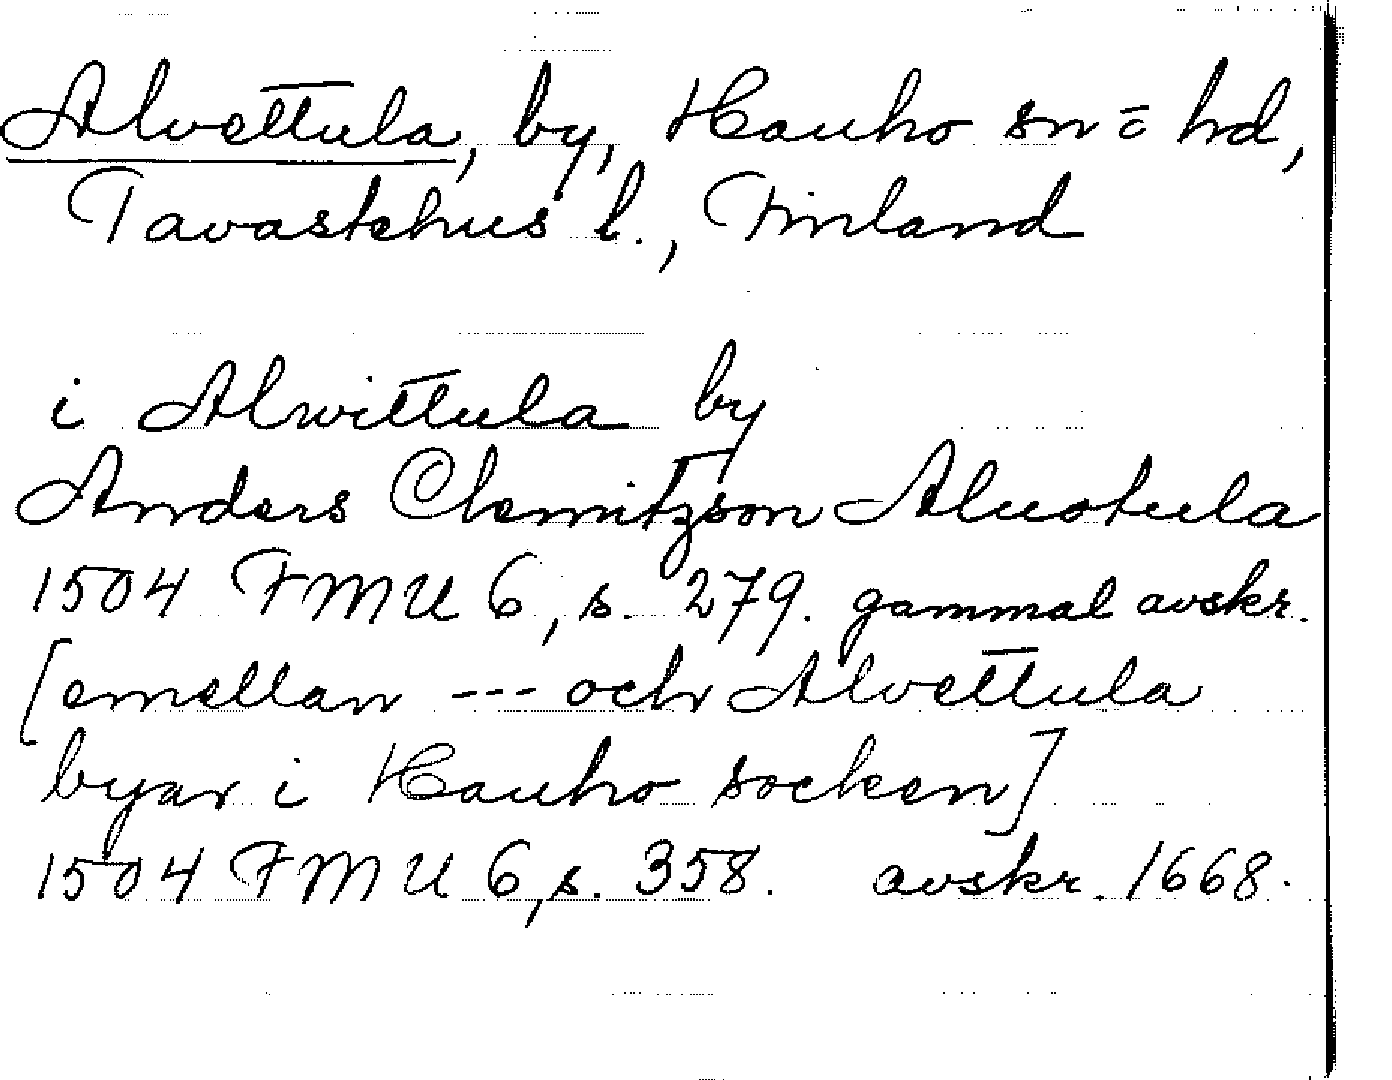 Alvettula, by, Hauho sn o hd,
Tavastehus l., Finland
i Alwittula by
Anders Clemitzson Aluotula
1504 FMU 6, s. 279. gammal avskr.
[emellan --- och Alvettula
byar i Hauho socken]
1504 FMU 6, s. 358. avskr. 1668.